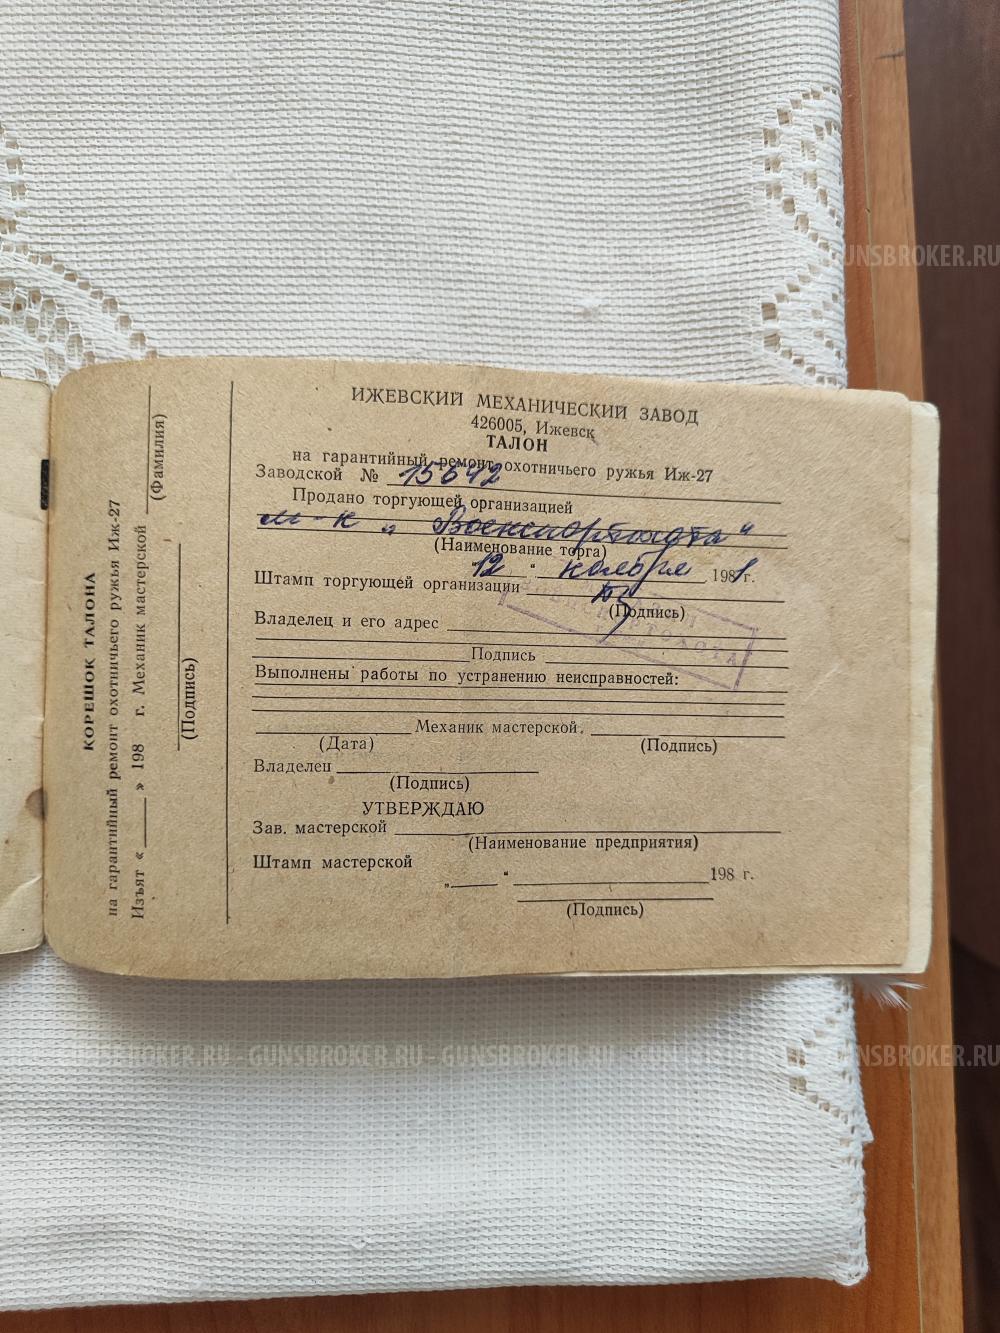 GUNSBROKER.RU
ИЖЕВСКИЙ МЕХАНИЧЕСКИЙ ЗАВОД
426005, Ижевск
ТАЛОН
на гарантийный ремонт охотничьего ружья Иж-27
Заводской № 15642
Продано торгующей организацией
м-н „Военспортохота"
(Наименование торга)
"12" ноября 1981 г.
Штамп торгующей организации
(Подпись)
ВОЕНСПОРТОХОТА
Владелец и его адрес
Подпись
Выполнены работы по устранению неисправностей:
Механик мастерской.
(Дата) (Подпись)
Владелец
(Подпись)
УТВЕРЖДАЮ
Зав. мастерской
(Наименование предприятия)
Штамп мастерской
„ " 198 г.
(Подпись)
КОРЕШОК ТАЛОНА
на гарантийный ремонт охотничьего ружья Иж-27
Изъят « » 198 г. Механик мастерской
(Фамилия)
(Подпись)
GUNSBROKER.RU - GUNSBROKER.RU - GUNSBROKER.RU - GUNSBROKER.RU GUNSBROKER.RU